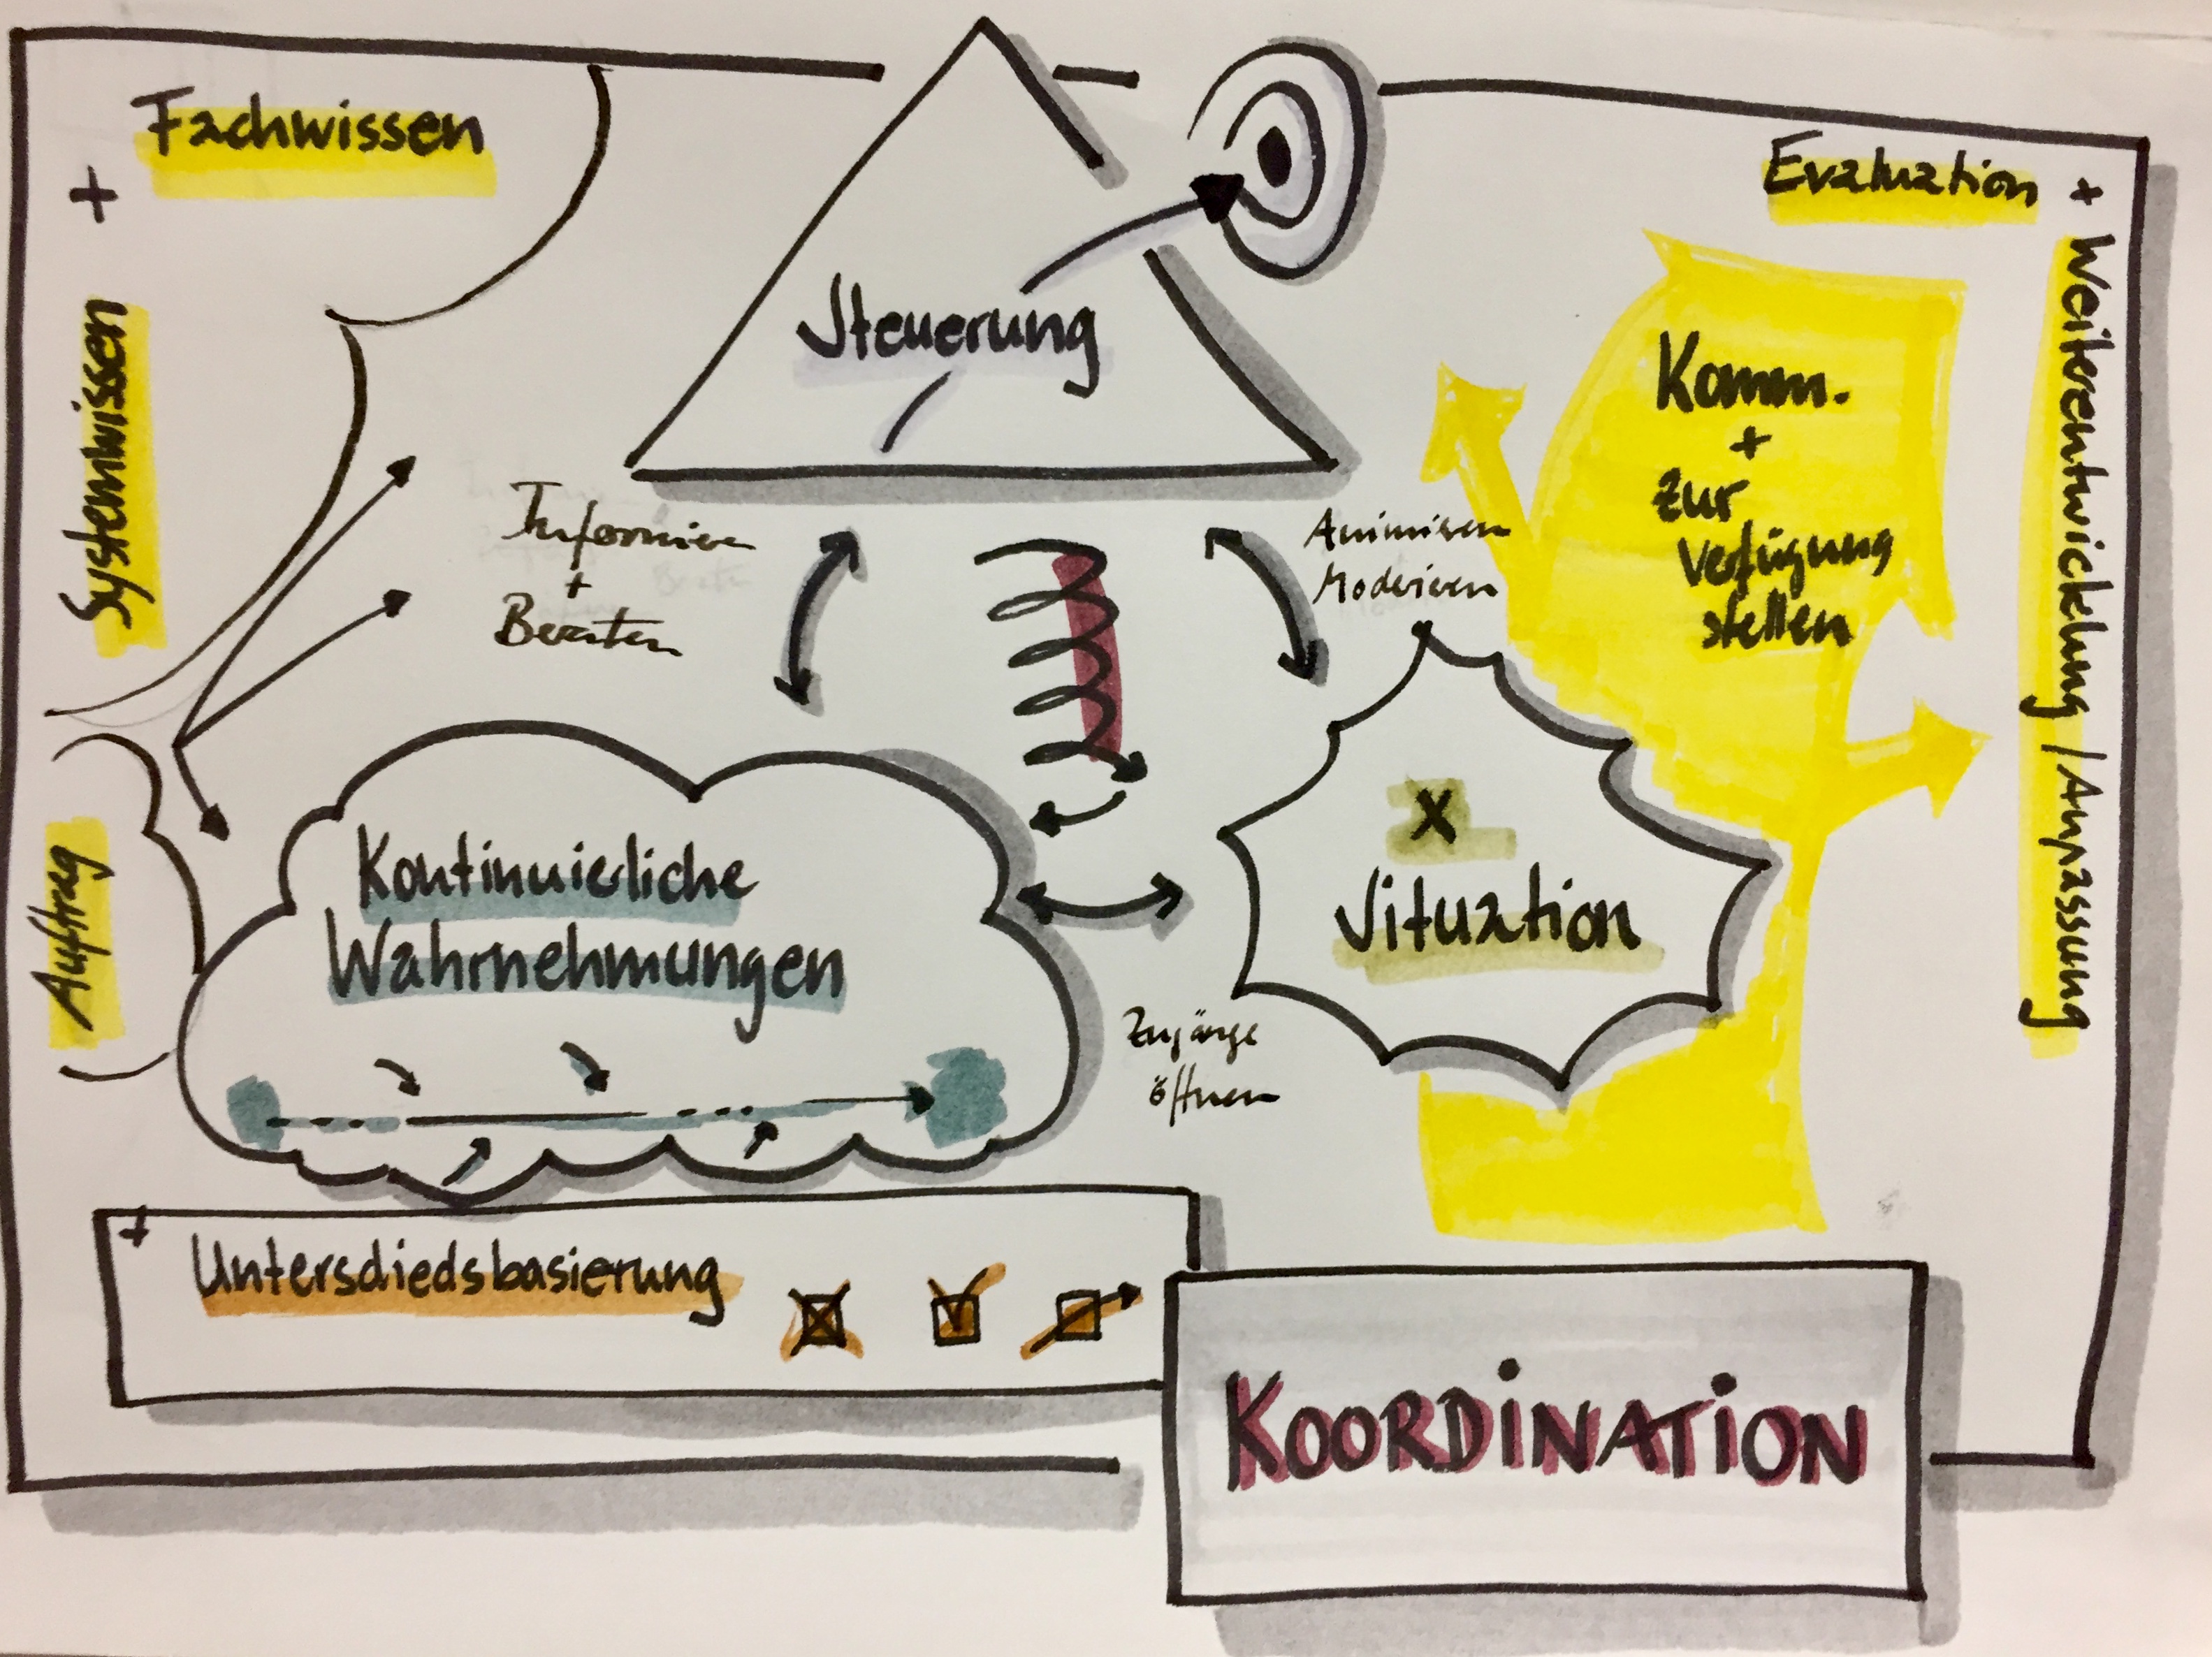 Fachwissen
+
Systemwissen
Auftrag
Steuerung
Informieren
+
Beraten
Animieren
Moderieren
Evaluation
+ Weiterentwicklung / Anpassung
Komm.
+
zur
Verfügung
stellen
Kontinuierliche
Wahrnehmungen
X
Situation
Zugänge
öffnen
+
Unterschiedsbasierung
KOORDINATION